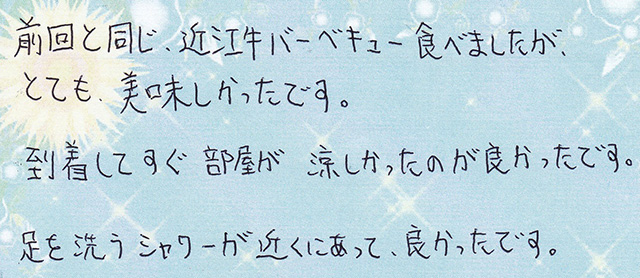 前回と同じ、近江牛バーベキュー食べましたが、
とても、美味しかったです。
到着してすぐ部屋が 涼しかったのが良かったです。
足を洗うシャワーが近くにあって、良かったです。